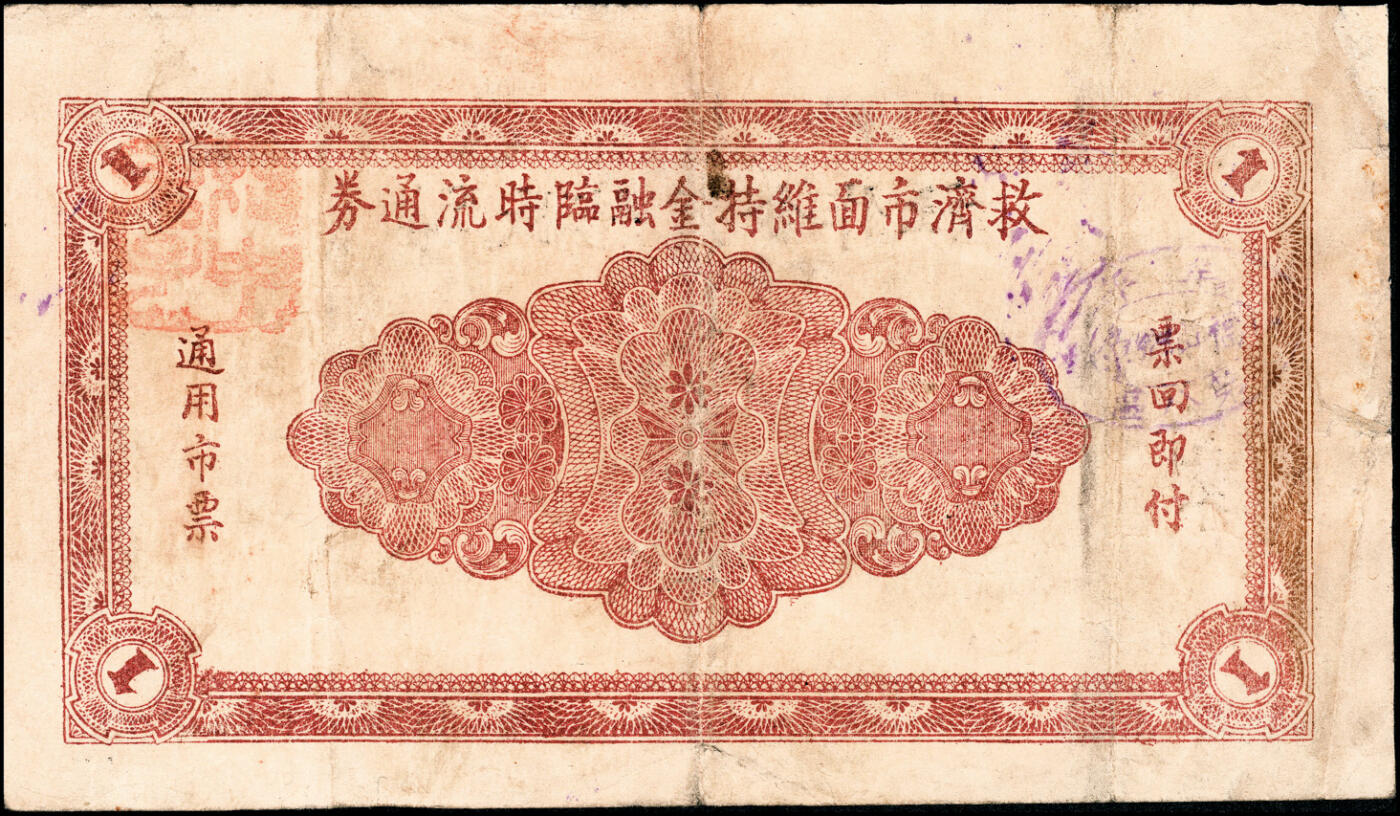 救濟市面維持金融臨時流通劵
票回即付
通用市票
1
1
1
1